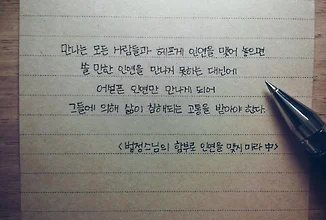 만나는 모든 사람들과 헤프게 인연을 맺어 놓으면
쓸 만한 인연을 만나지 못하는 대신에
어설픈 인연만 만나게 되어
그들에 의해 삶이 침해되는 고통을 받아야 한다.
<법정스님의 함부로 인연을 맺지 마라 中>